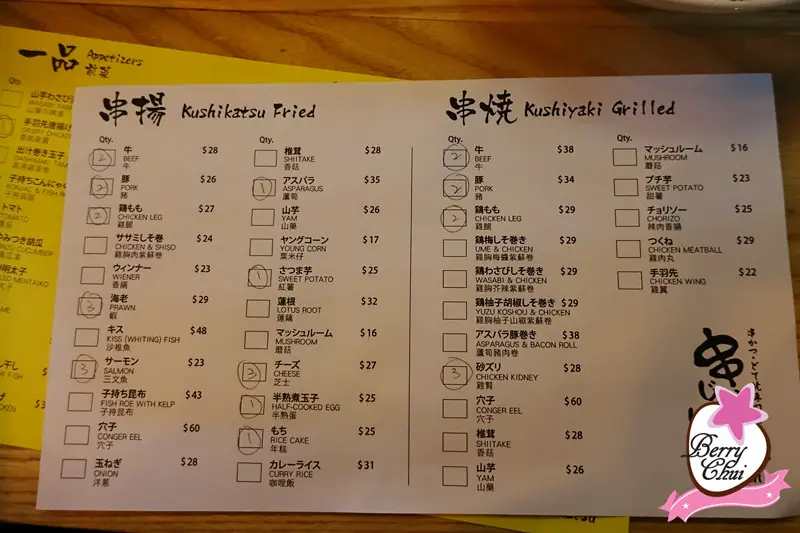 一品 Appetizers
前菜
Qty.
WASABI YAM
手羽先唐揚げ
CRISPY CHICKEN
出汁巻き玉子
子持ちこんにゃく
トマト
TOMATO
串揚 Kushikatsu Fried
Qty.
2 牛 $28
BEEF
牛
2 豚 $26
PORK
豬
2 鶏もも $27
CHICKEN LEG
雞腿
ササミしそ巻き $24
CHICKEN & SHISO
雞胸肉紫蘇卷
ウィンナー $23
WIENER
香腸
3 海老 $29
PRAWN
蝦
キス $48
KISS (WHITING) FISH
沙佳魚
3 サーモン $23
SALMON
三文魚
子持ち昆布 $43
FISH ROE WITH KELP
子持昆布
穴子 $60
CONGER EEL
穴子
玉ねぎ $28
ONION
洋蔥
Qty.
椎茸 $28
SHIITAKE
香菇
1 アスパラ $35
ASPARAGUS
蘆筍
山芋 $26
YAM
山藥
ヤングコーン $17
YOUNG CORN
粟米仔
1 さつま芋 $25
SWEET POTATO
紅薯
蓮根 $32
LOTUS ROOT
蓮藕
マッシュルーム $16
MUSHROOM
蘑菇
3 チーズ $27
CHEESE
芝士
1 半熟煮玉子 $25
HALF-COOKED EGG
半熟蛋
1 もち $25
RICE CAKE
年糕
カレーライス $31
CURRY RICE
咖喱飯
串焼 Kushiyaki Grilled
Qty.
2 牛 $38
BEEF
牛
2 豚 $34
PORK
豬
2 鶏もも $29
CHICKEN LEG
雞腿
鶏梅しそ巻き $29
UME & CHICKEN
雞胸梅醬紫蘇卷
鶏わさびしそ巻き $29
WASABI & CHICKEN
雞胸芥辣紫蘇卷
鶏柚子胡椒しそ巻き $29
YUZU KOSHOU & CHICKEN
雞胸柚子山椒紫蘇卷
アスパラ豚巻き $38
ASPARAGUS & BACON ROLL
蘆筍豬肉卷
3 砂ズリ $28
CHICKEN KIDNEY
雞腎
穴子 $60
CONGER EEL
穴子
椎茸 $28
SHIITAKE
香菇
山芋 $26
YAM
山藥
Qty.
マッシュルーム $16
MUSHROOM
蘑菇
プチ芋 $23
SWEET POTATO
甜薯
チョリソー $25
CHORIZO
辣肉香腸
つくね $29
CHICKEN MEATBALL
雞肉丸
手羽先 $22
CHICKEN WING
雞翼
Berry
Chui